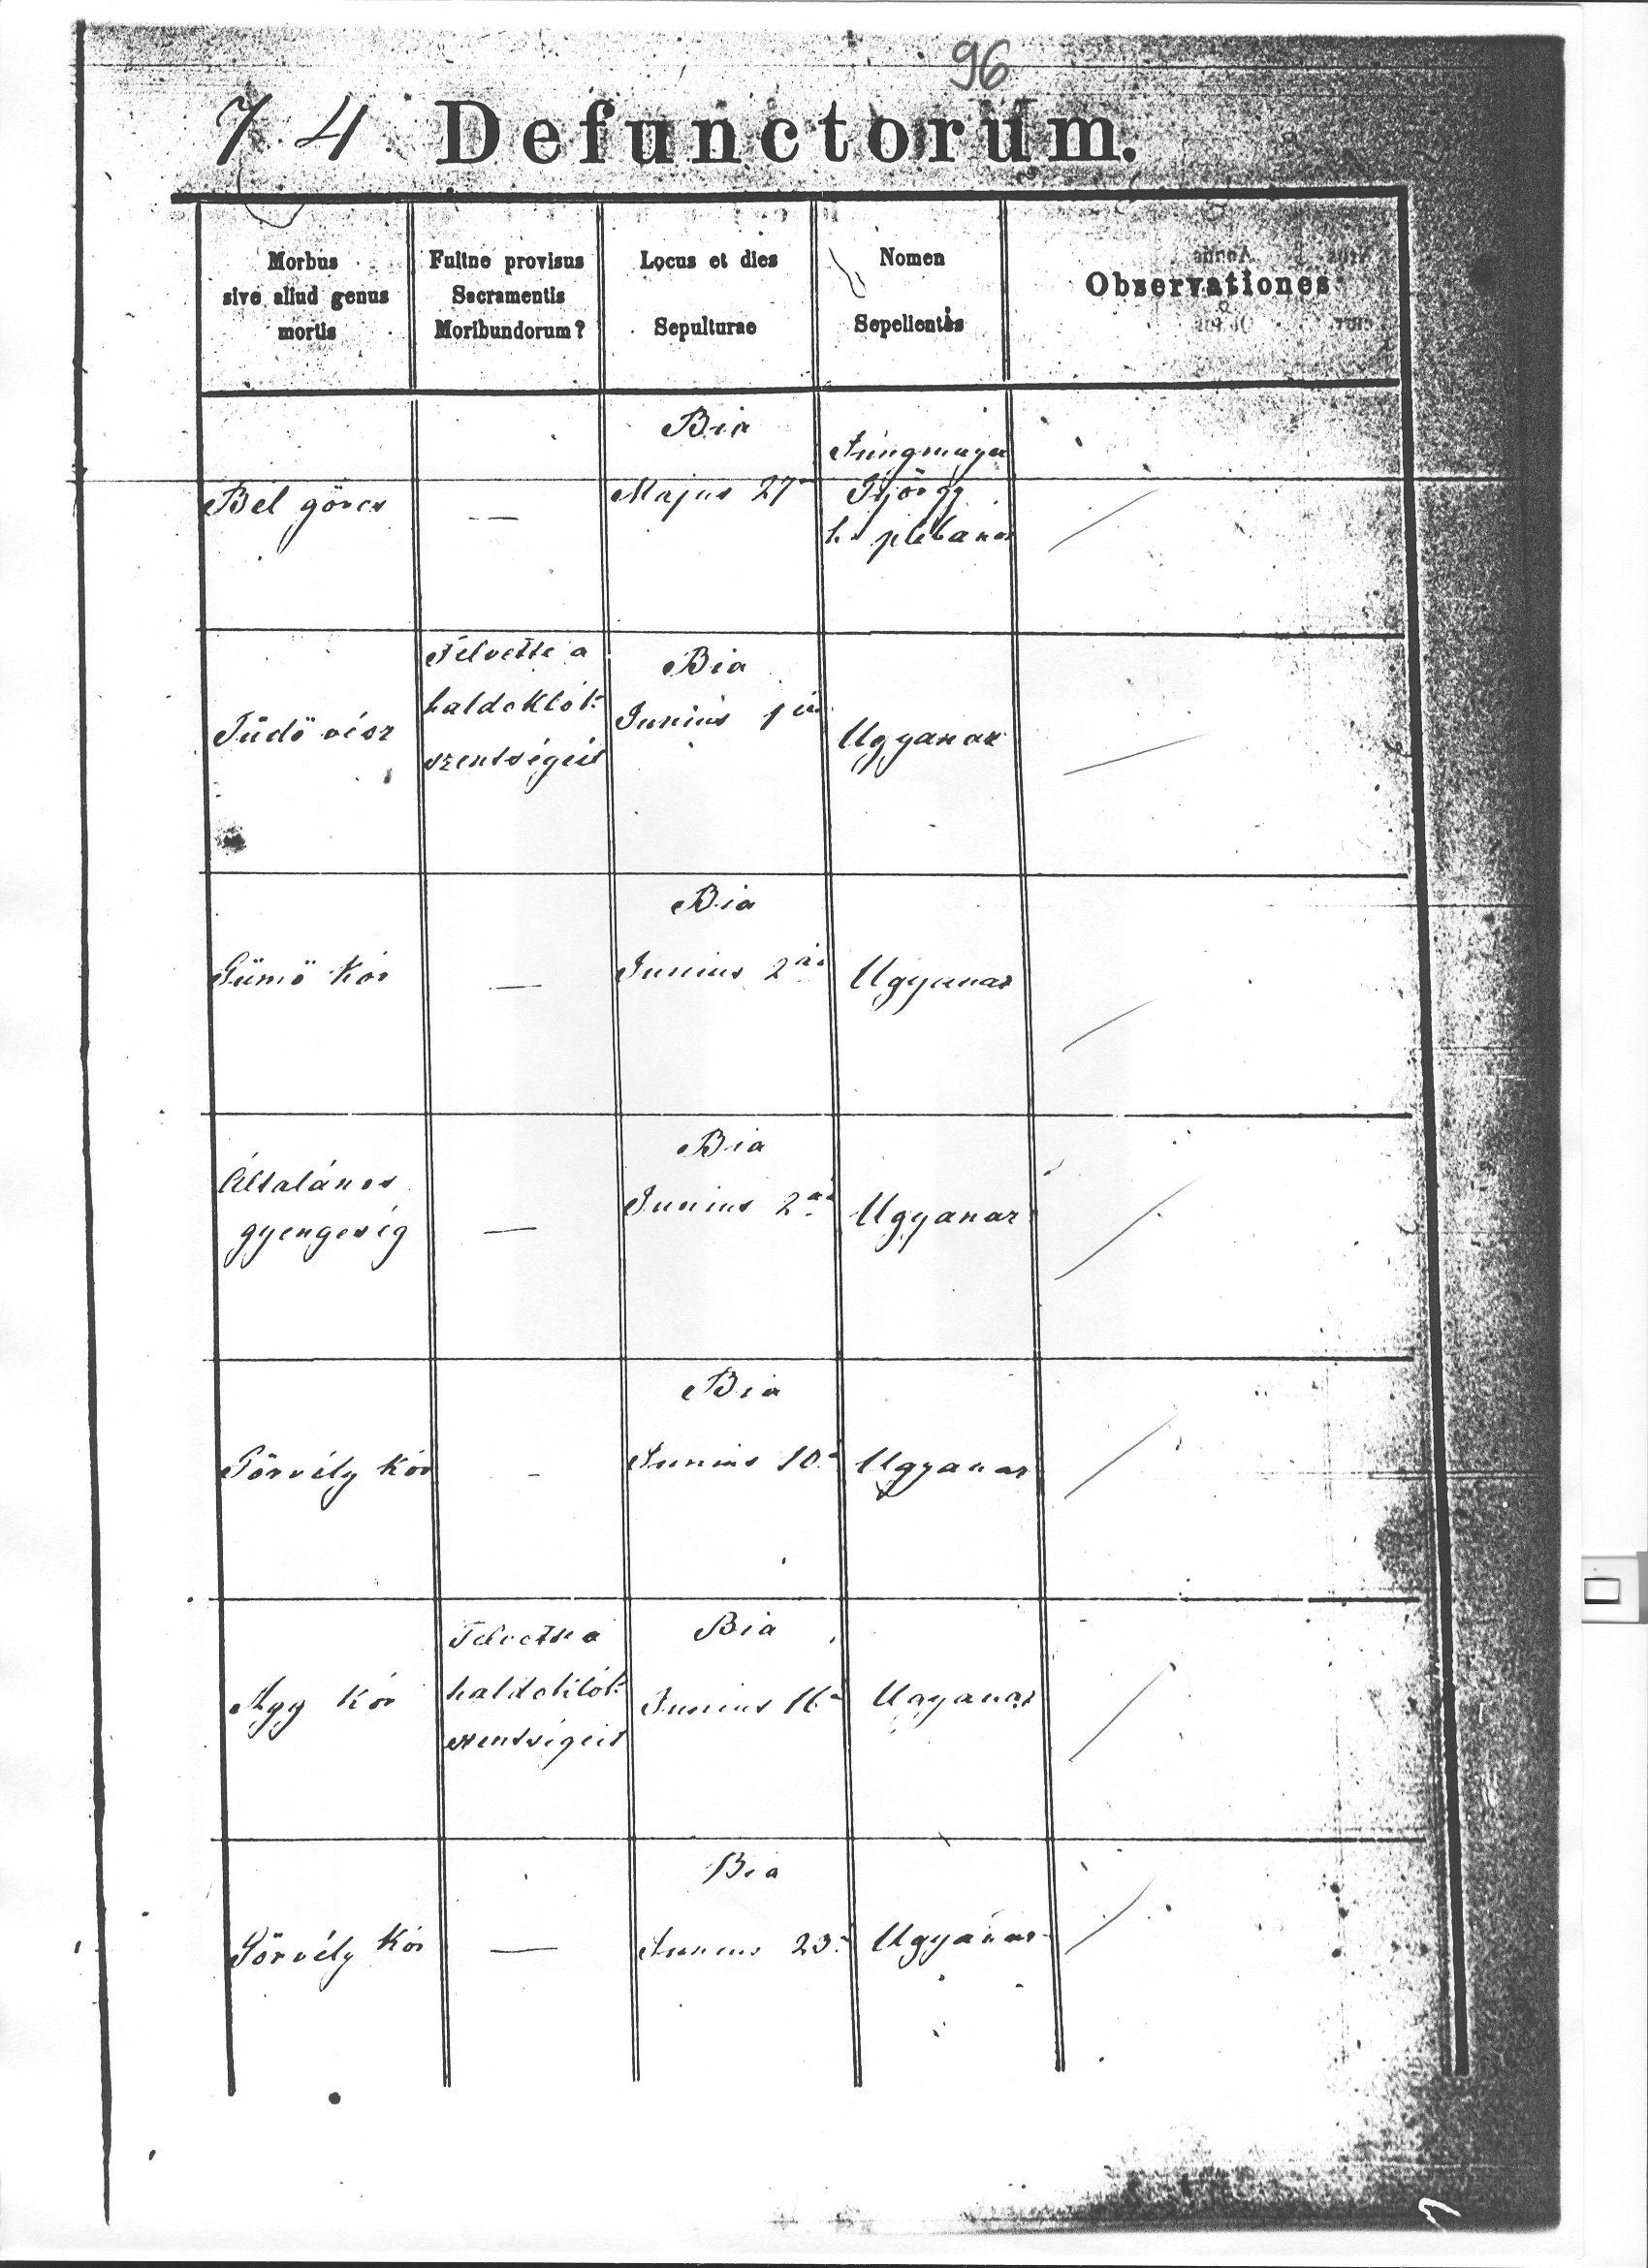 96
74 Defunctorum.
Morbus
sive aliud genus
mortis
Fuitne provisus
Sacramentis
Moribundorum?
Locus et dies
Sepulturae
Nomen
Sepelientis
Observationes
Bél görcs
—
Bia
Majus 27
György
h. plebános
Tüdö vész
Felvette a
haldoklók
szentségeit
Bia
Junius 1
Ugyanaz
Gümö kór
—
Bia
Junius 2
Ugyanaz
Általános
gyengeség
—
Bia
Junius 2
Ugyanaz
Görvély kór
-
Bia
Junius 10
Ugyanaz
Agy kór
Felvette a
haldoklók
szentségeit
Bia
Junius 16
Ugyanaz
Görvély kór
—
Bia
Junius
Ugyanaz